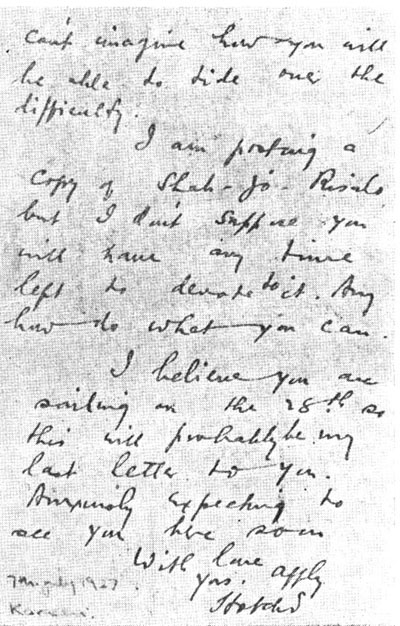 can't imagine how you will
be able to tide over the
difficulty.
I am posting a
Copy of Shah-jo-Risalo
but I don't suppose you
will have any time
left to devote to it. Any
how do what you can.
I believe you are
sailing on the 28th so
this will probably be my
last letter to you.
Anxiously expecting to
see you here soon
With love
yrs. affly
1927
Karachi.